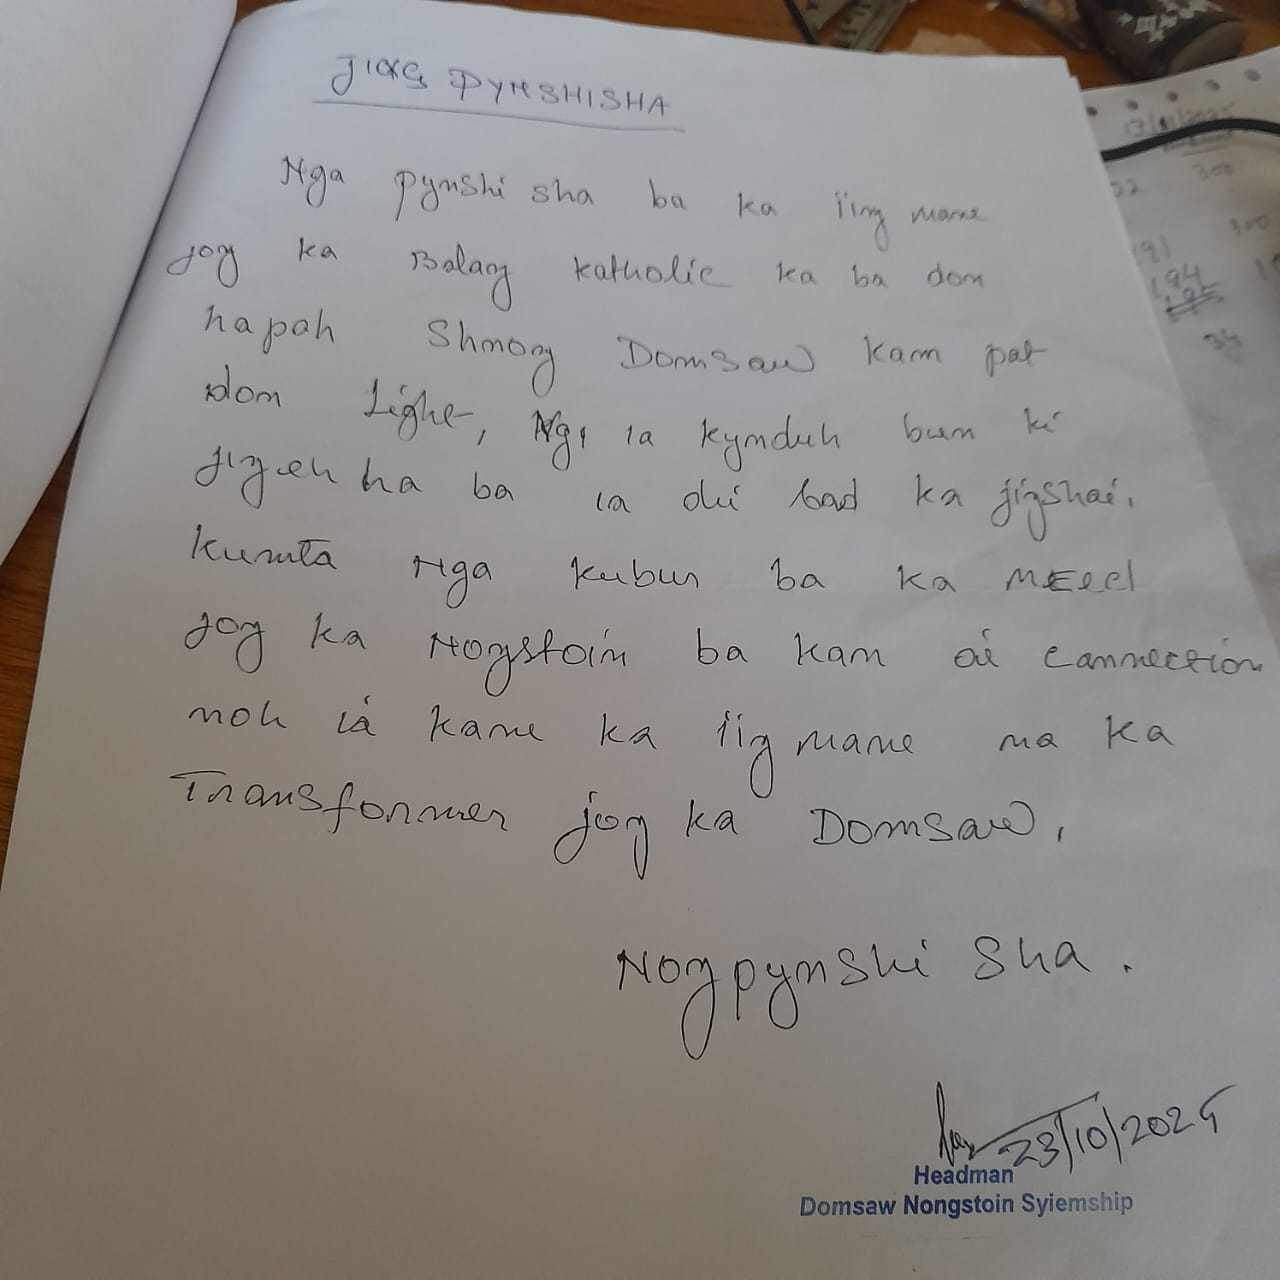 JINg PYNSHISHA
Nga pynshi sha ba ka ïing mane
jog ka Balang katholic ka ba don
hapoh Shnong Domsaw kam pat
don Light, Ngi ia kynduh bun ki
jingeh ha ba ia dei bad ka jingshai.
Kumta Nga kubur ba ka MEecl
jog ka Nongstoin ba kan ai connection
noh ïa kane ka ïing mane na ka
Transformer jog ka Domsaw.
Nongpynshi Sha.
23/10/2025
Headman
Domsaw Nongstoin Syiemship
17/11/2025
22 300
300
191
194
34